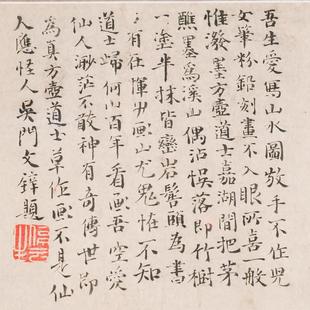 吾生愛寫山水圖敬手不作兒
女筆粉鉛刻畫不入眼所喜一般
惟潑墨方壺道士嘉湖間把茅
醮墨為溪山偶沾悞落即竹樹
一塗半抹皆巒岩頭為書
有往山尤鬼怪不知
道士歸何山百年看畫吾空愛
仙人渺茫不敢神有奇傳世即
為真方壺道士草作畫不是仙
人應怪人吳門文題